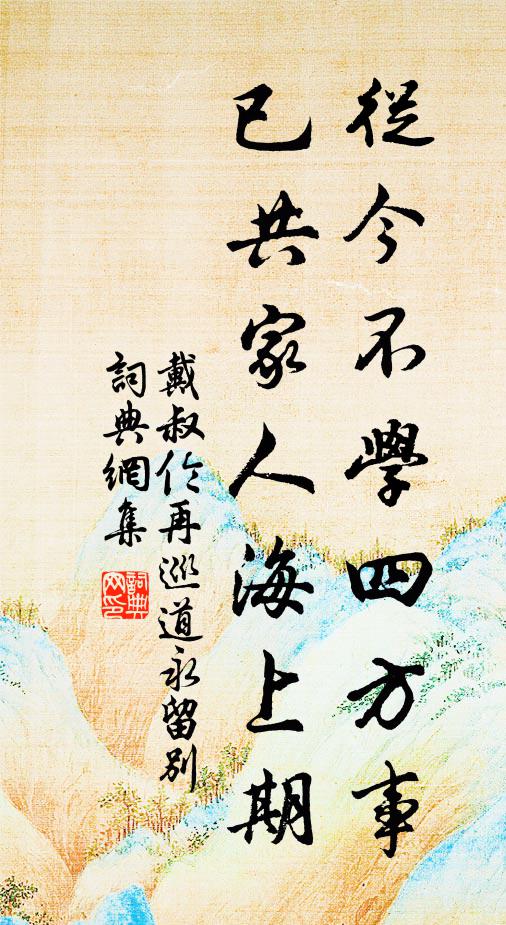 從今不學四方事
已共家人海上期
戴叔伦再巡道永留別
詞典網集
詞典
网印